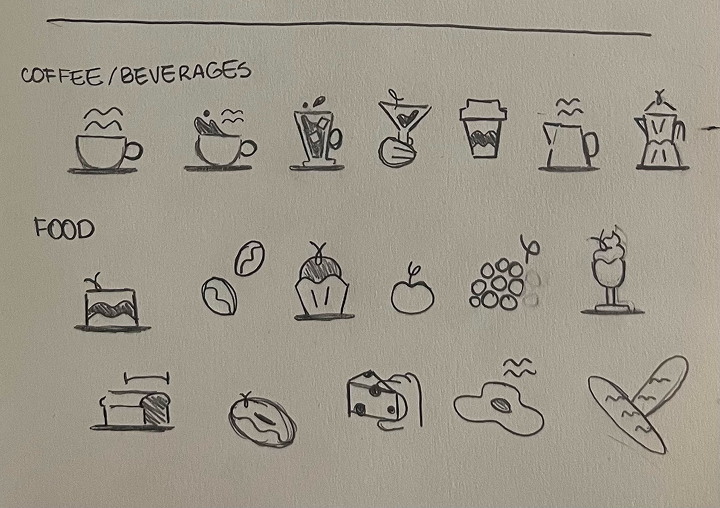 COFFEE/BEVERAGES
FOOD